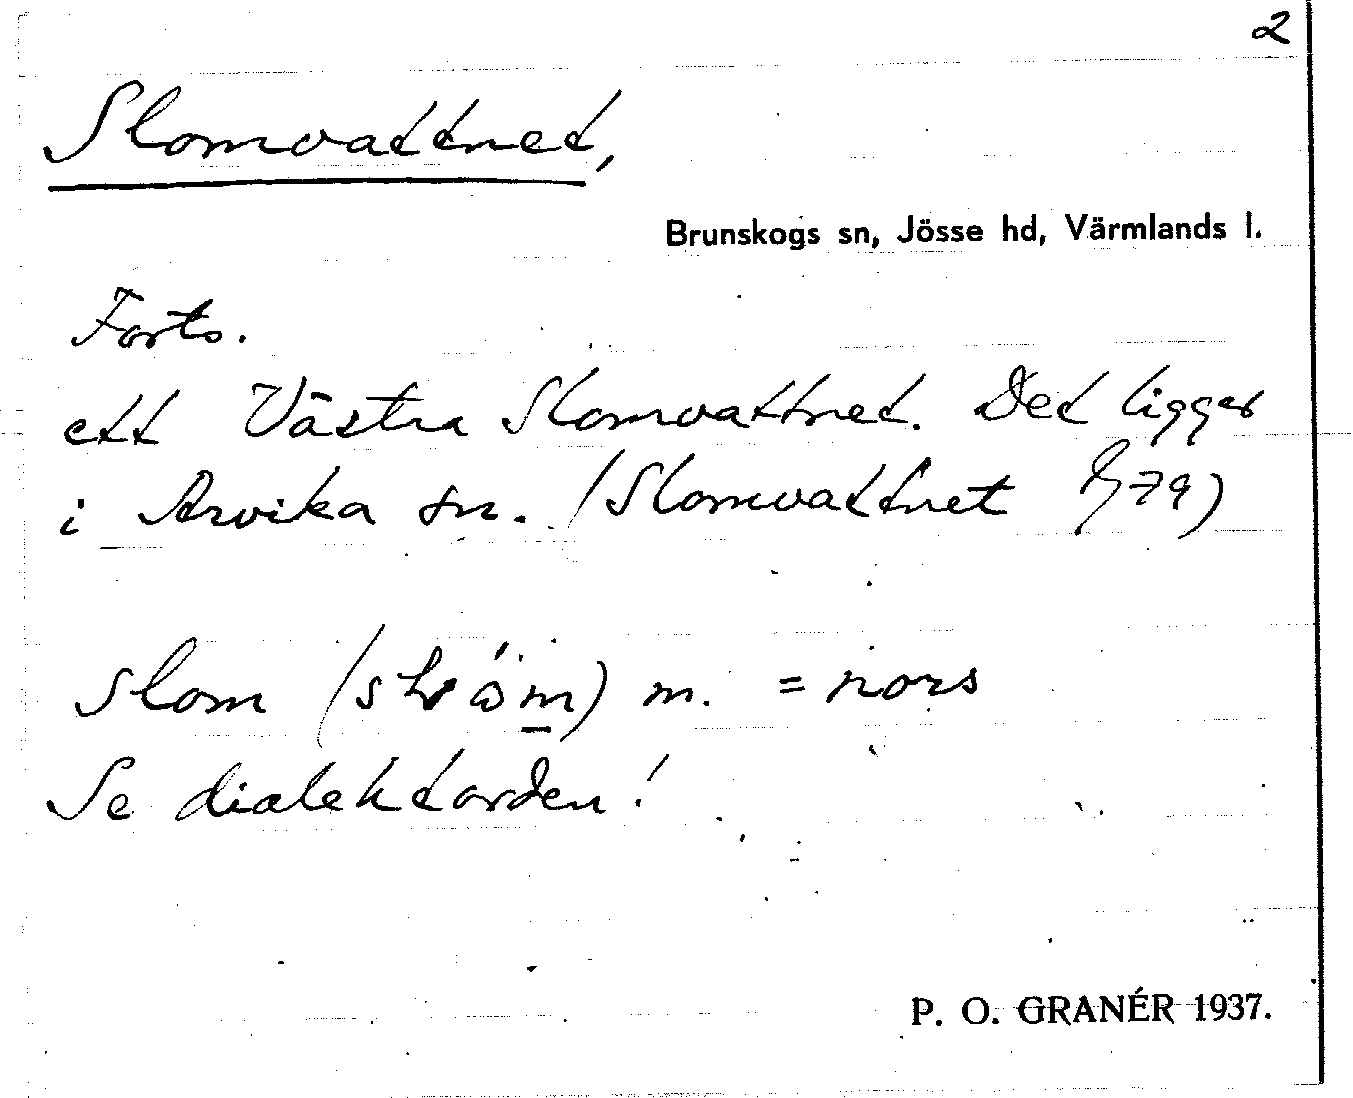 2
Slomvattnet,
Brunskogs sn, Jösse hd, Värmlands l.
Forts.
ett Västra Slomvattnet. Det ligger
i Arvika sn. (Slomvattnet 79)
slom ( ) m. = nors
Se dialektorden!
P. O. GRANÉR 1937.